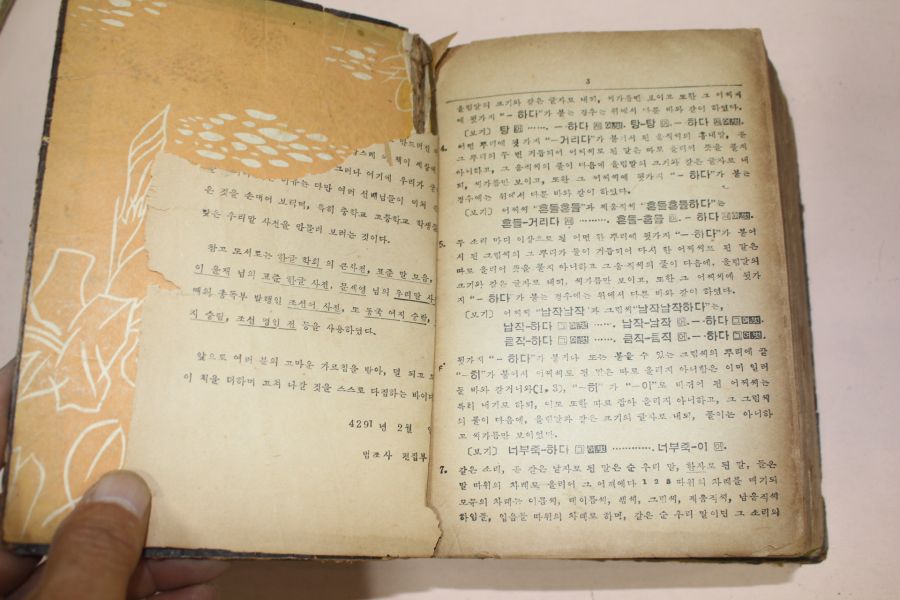 은 것을 손대어 보탰으며, 특히 중학교 고등학교 학생들
맞는 우리말 사전을 만들어 보려는 것이다.
참고 도서로는 한글 학회의 큰사전, 표준 말 모음,
이 윤재 님의 표준 한글 사전, 문세영 님의 우리말 사
때의 총독부 발행인 조선어 사전, 또 동국 여지 승람,
지 승람, 조선 명인 전 등을 사용하였다.
앞으로 여러 분의 고마운 가르침을 받아, 덜 되고
이 책을 더하며 고쳐 나갈 것을 스스로 다짐하는 바이다
4291 년 2월
범조사 편집부
3
올림말의 크기와 같은 글자로 내되, 씨가름만 보이고 또한 그 어찌씨
에 뒷가지 "－하다"가 붙는 경우는 위에서 다룬 바와 같이 하였다.
[보기] 탕 ……, －하다 탕－탕 －하다
4. 어떤 뿌리에 뒷가지 "－거리다"가 붙어서 된 움직씨의 흉내말, 곧
그 뿌리의 두 번 거듭되어 어찌씨로 된 말은 따로 올리어 뜻을 풀지
아니하고, 그 움직씨의 풀이 다음에 올림말의 크기와 같은 글자로 내
되, 씨가름만 보이고, 또한 그 어찌씨에 뒷가지 "－하다"가 붙는
경우에는 위에서 다룬 바와 같이 하였다.
[보기] 어찌씨 "흔들흔들"과 제움직씨 "흔들흔들하다"는
흔들－거리다 ………, 흔들－흔들 －하다
5. 두 소리 마디 이상으로 될 어떤 한 뿌리에 뒷가지 "－하다"가 붙어
서 된 그림씨의 그 뿌리가 둘이 거듭되어 다시 한 어찌씨로 된 말은
따로 올리어 뜻을 풀지 아니하고 그 움직씨의 풀이 다음에, 올림말의
크기와 같은 글자로 내되, 씨가름만 보이고, 또한 그 어찌씨에 뒷가
지 "－하다"가 붙는 경우에는 위에서 다룬 바와 같이 하였다.
[보기] 어찌씨 "납작납작"과 그림씨 "납작납작하다"는,
납작－하다 ……, 납작－납작 －하다
큼직－하다 ……, 큼직－큼직 －하다
뒷가지 "－하다"가 붙거나 또는 붙을 수 있는 그림씨의 뿌리에 끝
"－히"가 붙어서 어찌씨로 된 말은 따로 올리지 아니함은 이미 일러
둘 바와 같거니와(1.3), "－히"가 "－이"로 바뀌어 된 어찌씨는
특히 내기로 하되, 이도 또한 따로 잡아 올리지 아니하고, 그 그림씨
의 풀이 다음에, 올림말과 같은 크기의 글자로 내되, 풀이는 아니하
고 씨가름만 보이었다.
[보기] 너부죽－하다 …………, 너부죽－이
7. 같은 소리, 곧 같은 낱자로 된 말은 순 우리 말, 한자로 된 말, 들은
말 따위의 차례로 올리어 그 어깨에다 1 2 3 따위의 차례를 매기되
모두의 차례는 이름씨, 대이름씨, 셈씨, 그림씨, 제움직씨, 남움직씨
하임움, 입음움 따위의 차례로 하며, 같은 순 우리 말이던 그 소리의